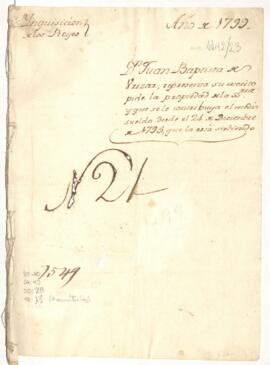 Ynquisicion
de los Reyes
Año de 1799.
Dn. Juan Baptista de
Uzizar, representa su merito
pide la propiedad de la
y que se le contribuya el medio
sueldo desde el 24 de Diciembre
de 1795, que la está sirviendo
N 21
1549